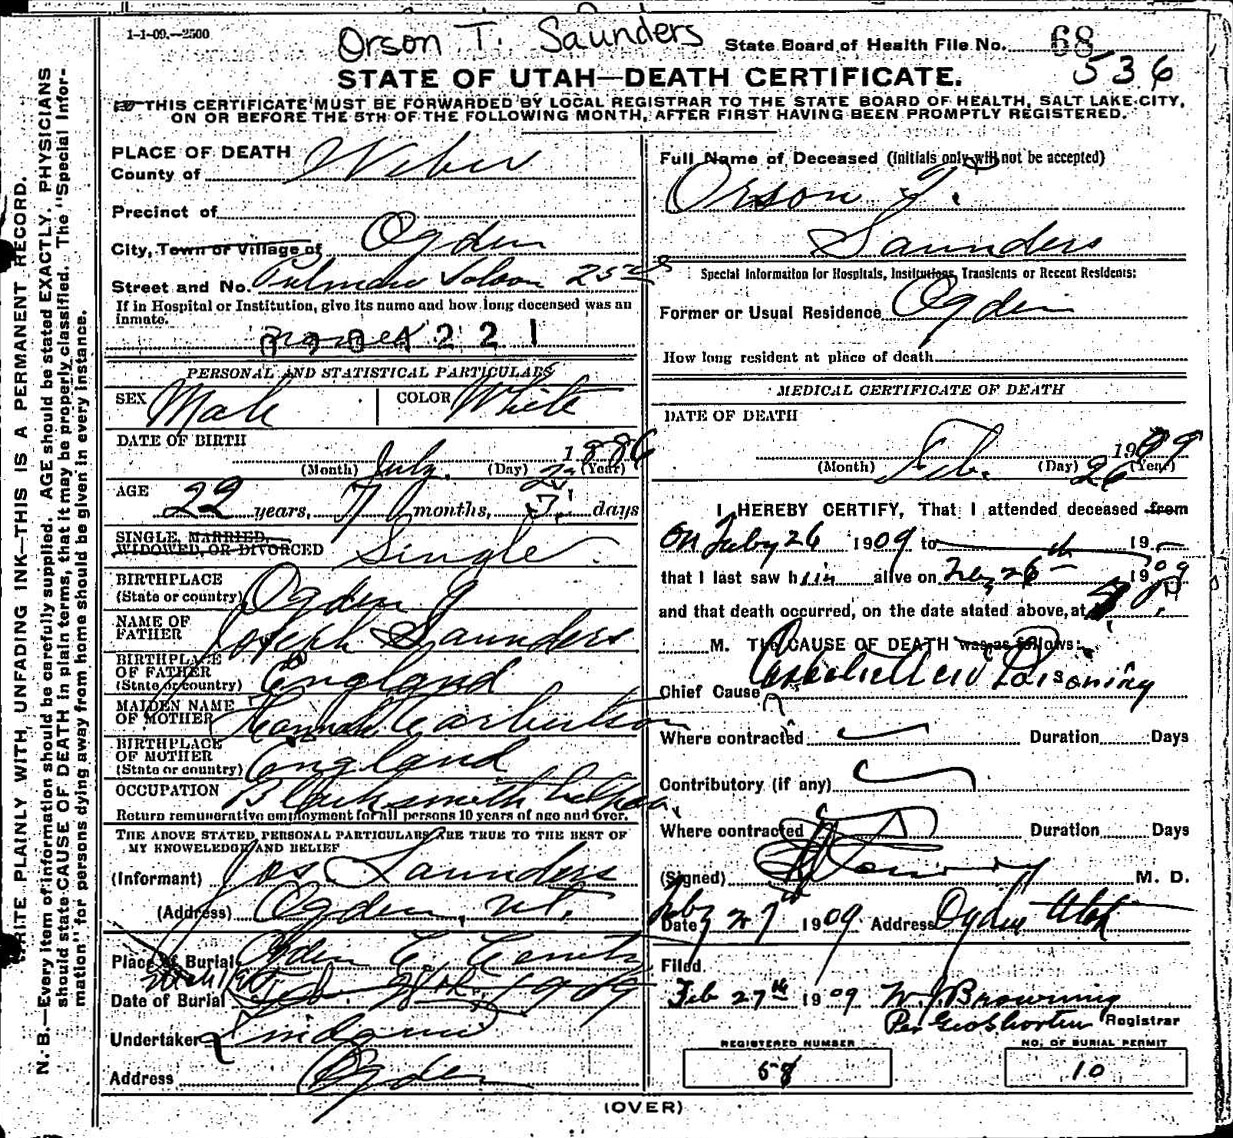 1-1-09.—2500
Orson T. Saunders
State Board of Health File No. 68
536
STATE OF UTAH—DEATH CERTIFICATE.
THIS CERTIFICATE MUST BE FORWARDED BY LOCAL REGISTRAR TO THE STATE BOARD OF HEALTH, SALT LAKE CITY,
ON OR BEFORE THE 5TH OF THE FOLLOWING MONTH, AFTER FIRST HAVING BEEN PROMPTLY REGISTERED.
WRITE PLAINLY WITH UNFADING INK—THIS IS A PERMANENT RECORD.
N. B.—Every item of information should be carefully supplied. AGE should be stated EXACTLY. PHYSICIANS
should state CAUSE OF DEATH in plain terms, that it may be properly classified. The "Special Infor-
mation" for persons dying away from home should be given in every instance.
PLACE OF DEATH
County of Weber
Precinct of
City, Town or Village of Ogden
Street and No. 25
If in Hospital or Institution, give its name and how long deceased was an
inmate.
221
PERSONAL AND STATISTICAL PARTICULARS
SEX Male COLOR White
DATE OF BIRTH
1886
(Month) July (Day) (Year)
AGE
22 years, 7 months, days
SINGLE, MARRIED,
WIDOWED, OR DIVORCED Single
BIRTHPLACE
(State or country) Ogden
NAME OF
FATHER Joseph Saunders
BIRTHPLACE
OF FATHER
(State or country) England
MAIDEN NAME
OF MOTHER Hannah
BIRTHPLACE
OF MOTHER
(State or country) England
OCCUPATION Blacksmith
Return remunerative employment for all persons 10 years of age and over.
THE ABOVE STATED PERSONAL PARTICULARS ARE TRUE TO THE BEST OF
MY KNOWELEDGE AND BELIEF
(Informant) Jos Saunders
(Address) Ogden, Ut.
Place of Burial Ogden C. Cemty
Date of Burial 1909
Undertaker
Address Ogden
Full Name of Deceased (Initials only will not be accepted)
Orson T.
Saunders
Special Informaiton for Hospitals, Institutions, Transients or Recent Residents:
Former or Usual Residence Ogden
How long resident at place of death
MEDICAL CERTIFICATE OF DEATH
DATE OF DEATH
1909
(Month) Feb. (Day) 26 (Year)
I HEREBY CERTIFY, That I attended deceased from
On Feby 26 1909 to 19
that I last saw him alive on Feby 26th 1909
and that death occurred, on the date stated above, at
M. The CAUSE OF DEATH was as follows:
Chief Cause Carbolic Acid Poisoning
Where contracted Duration Days
Contributory (if any)
Where contracted Duration Days
(Signed) M. D.
Date Feby 27 1909 Address Ogden Utah
Filed
Feb 27th 1909 W. J. Browning
Per Geo Shorten Registrar
REGISTERED NUMBER
68
NO. OF BURIAL PERMIT
10
(OVER)